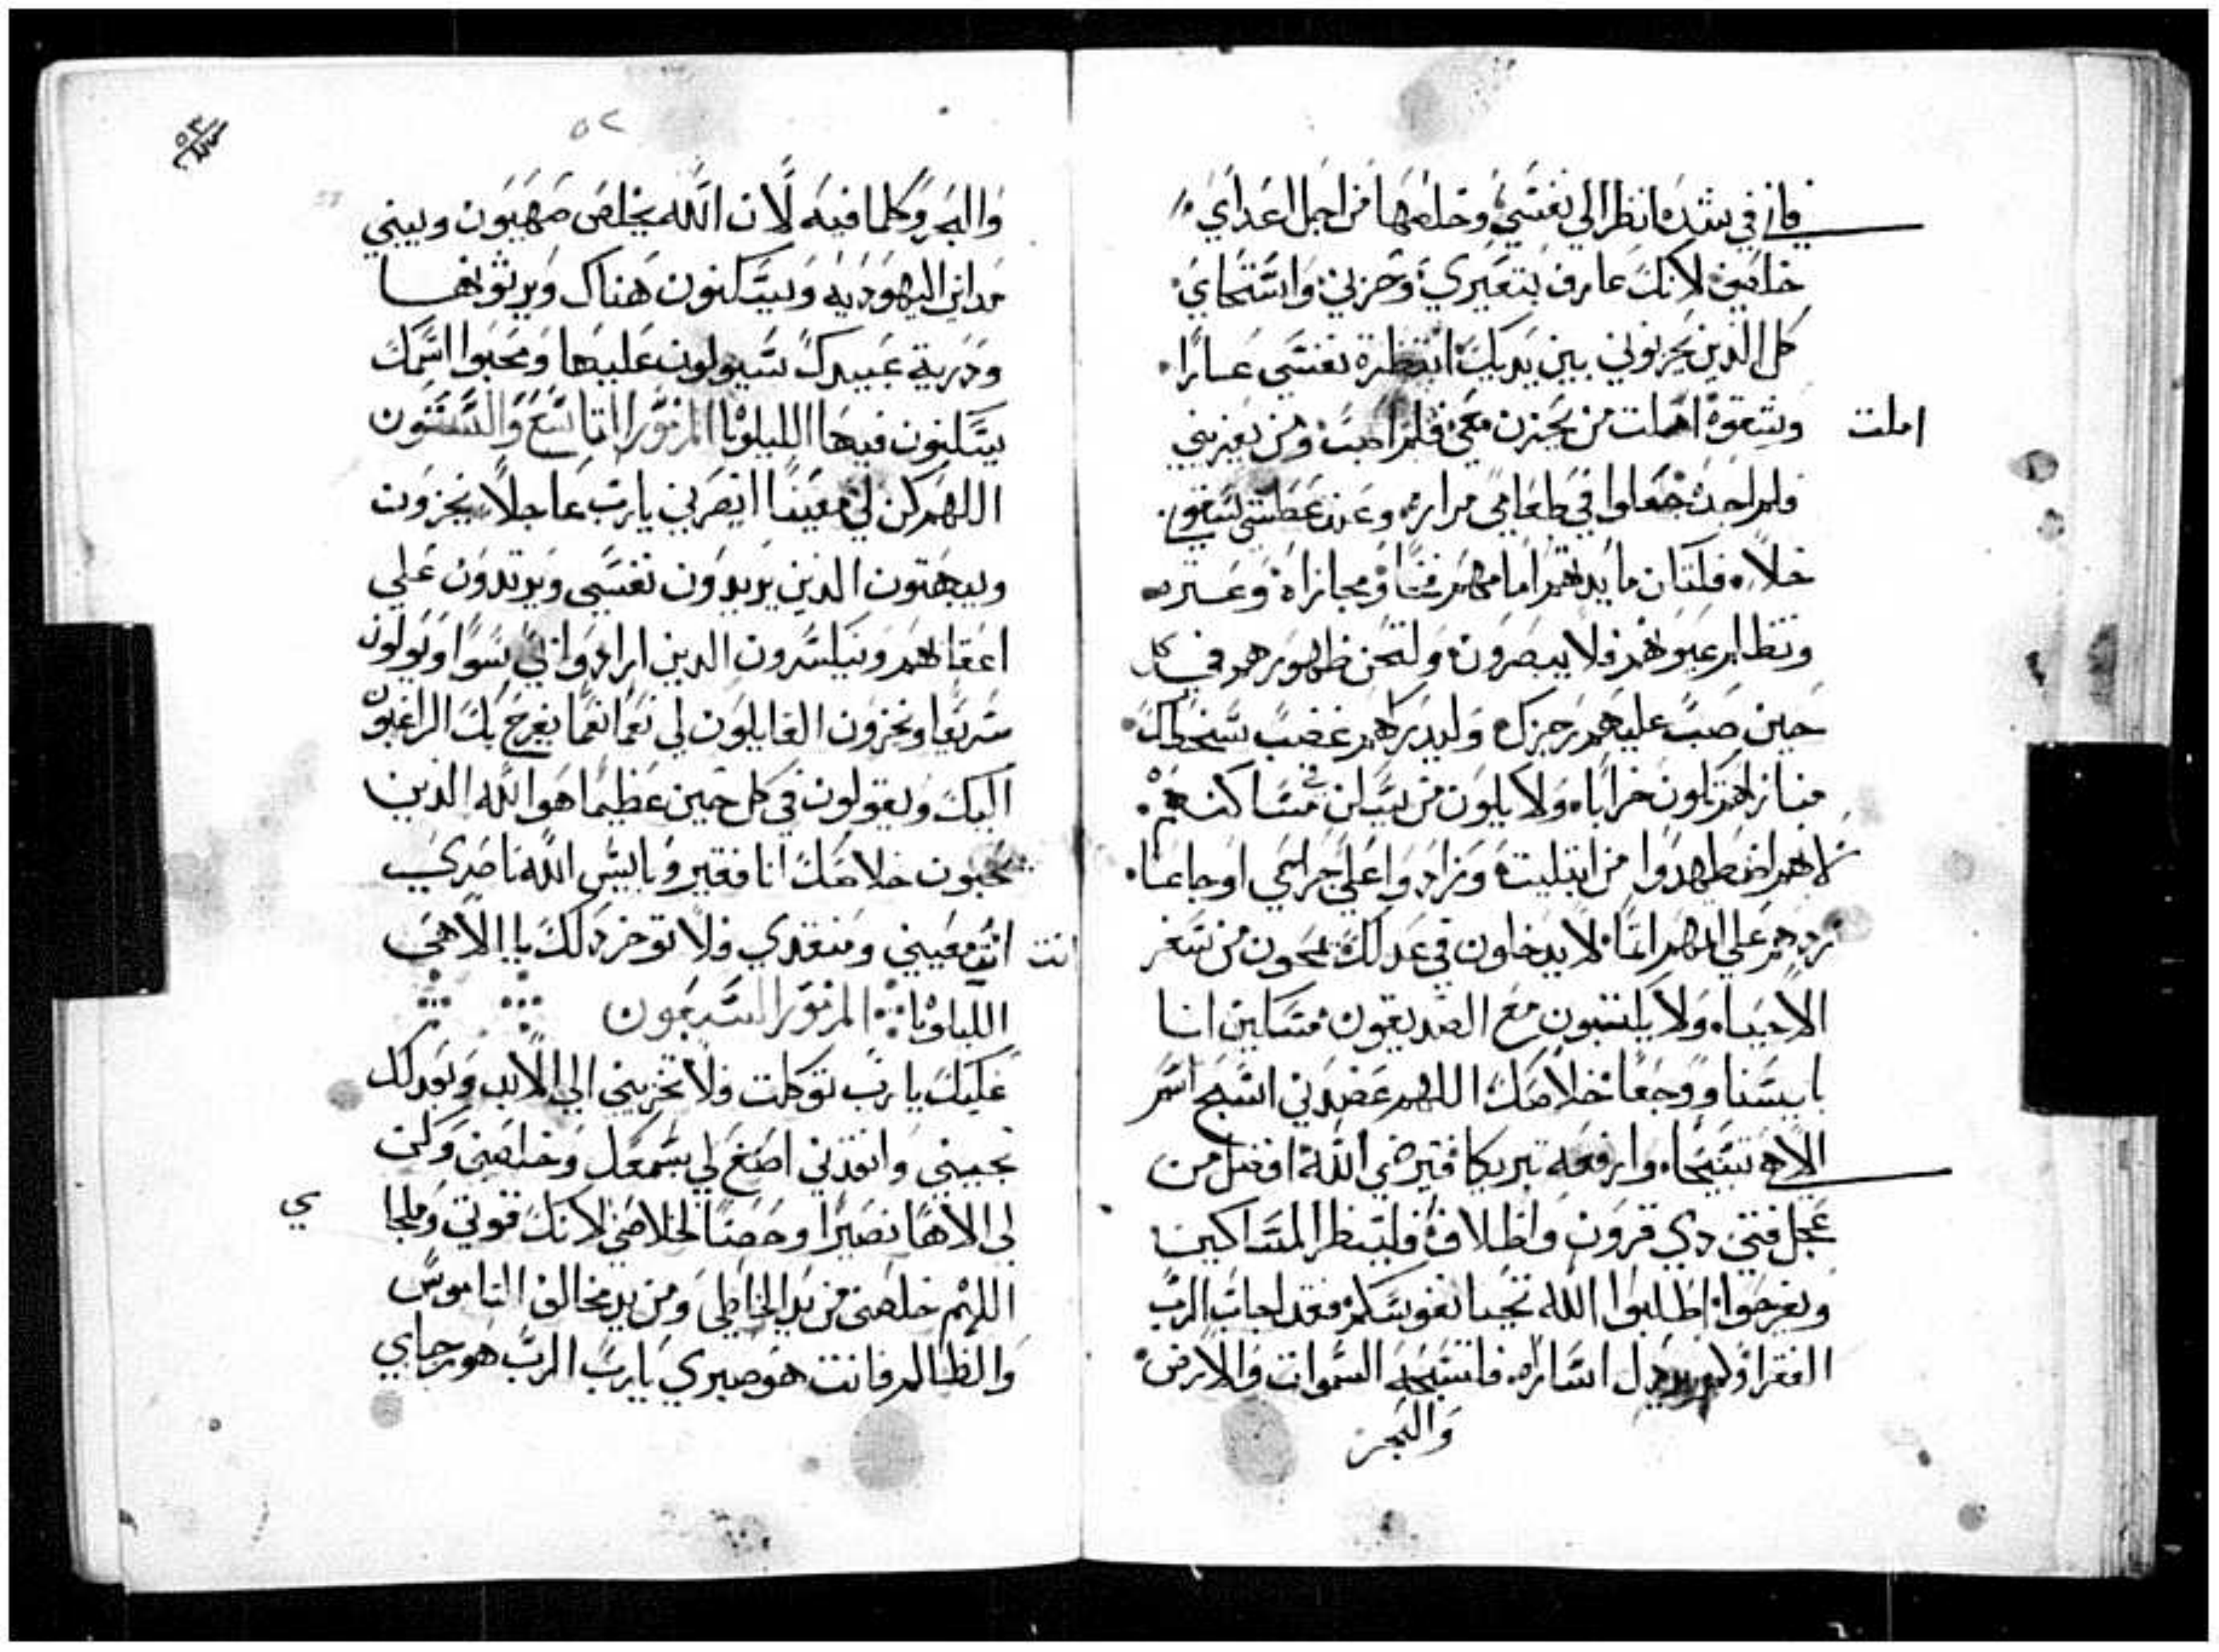 فاني في شده انظر الي نفسي وخلصها من اجل اعداي
خلصني لانك عارف بتعييري وخزيي واستحياي
كل الذين يحزنوني بين يديك انتظرة نفسي عارا
وشقوة املت من يحزن معي فلم اصب ومن يعزيني
املت
فلم اجد جعلوا في طعامي مرارة وعند عطشي سقوني
خلا فلتكن مايدتهم امامهم فخا ومجازاة وعثره
وتظلم عيونهم فلا يبصرون ولتحن ظهورهم في كل
حين صب عليهم رجزك وليدركهم غضب سخطك
منازلهم تكون خرابا ولا يكون من يسكن في مساكنهم
لانهم اضطهدوا من ابتليته وزادوا علي جراحي اوجاعا
زدهم علي اثمهم اثما لا يدخلون في عدلك يمحون من سفر
الاحياء ولا يكتبون مع الصديقون مسكين انا
بايسا ووجعا خلاصك اللهم عضدني اسبح اسم
الاهي تسبيحا وارفعه تبريكا فيرضي الله افضل من
عجل فتي ذي قرون واظلاف فلينظر المساكين
ويفرحوا اطلبوا الله تحيا نفوسكم فقد اجاب الرب
الفقرا ولم يرذل اساراه فلتسبحه السموات والارض
والبحر
٥٢
والبحر وكلما فيه لان الله يخلص صهيون ويبني
مداين اليهوديه ويسكنون هناك ويرثونها
وذرية عبيدك سيولون عليها ومحبوا اسمك
يسكنون فيها الليلويا المزمور التاسع والستون
اللهم كن لي معينا انصرني يا رب عاجلا يخزون
ويبهتون الذين يريدون نفسي ويرتدون علي
اعقابهم وينكسرون الذين ارادوا لي سوا ويولون
سريعا ويخزون القايلون لي نعما نعما يفرح بك الراغبون
اليك ويقولون في كل حين عظيما هو الله الذين
يحبون خلاصك انا فقير وبايس الله ناصري
انت معيني ومنقذي فلا توخر ذلك يا الاهي
انت
الليلويا المزمور السبعون
عليك يا رب توكلت فلا تخزيني الي الابد وبعدلك
نجيني وانقذني اصغ لي بسمعك وخلصني وكن
لي الاها نصيرا وحصنا لخلاصي لانك قوتي وملجا
ي
اللهم خلصني من يد الخاطي ومن يد مخالف الناموس
والظالم فانت هو صبري يا رب الرب هو رجاي